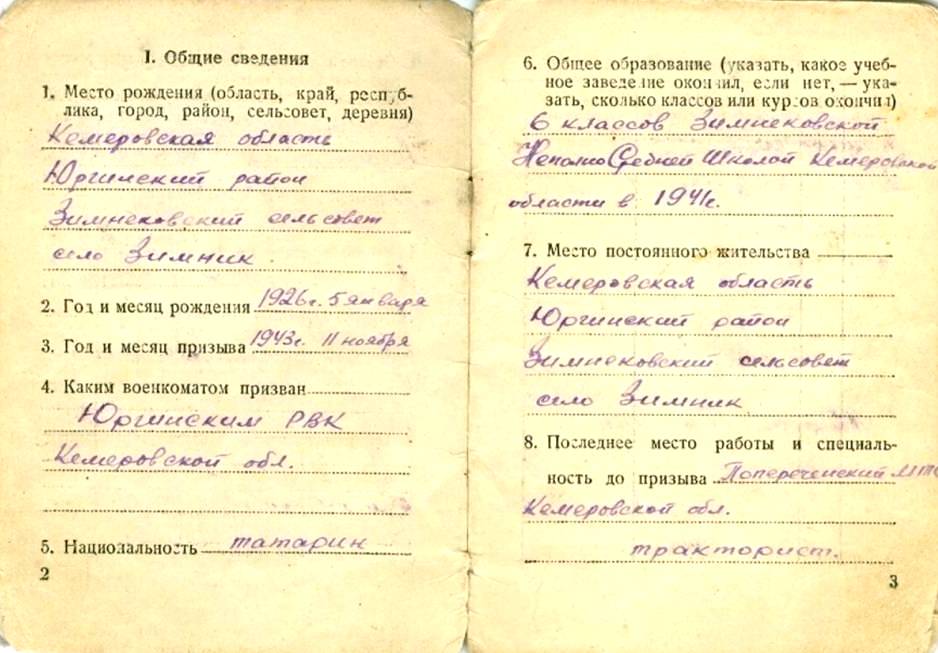 I. Общие сведения
1. Место рождения (область, край, респуб-
лика, город, район, сельсовет, деревня)
Кемеровская область
Юргинский район
Зимнековский сельсовет
село Зимник
2. Год и месяц рождения 1926г. 5 января
3. Год и месяц призыва 1943г. 11 ноября
4. Каким военкоматом призван
Юргинским РВК
Кемеровской обл.
5. Национальность татарин
2
6. Общее образование (указать, какое учеб-
ное заведение окончил, если нет, — ука-
зать, сколько классов или курсов окончил)
6 классов Зимнековской
Неполно Средней Школой Кемеровской
области в 1941г.
7. Место постоянного жительства
Кемеровская область
Юргинский район
Зимнековский сельсовет
село Зимник
8. Последнее место работы и специаль-
ность до призыва Попереченский МТС
Кемеровской обл.
тракторист.
3